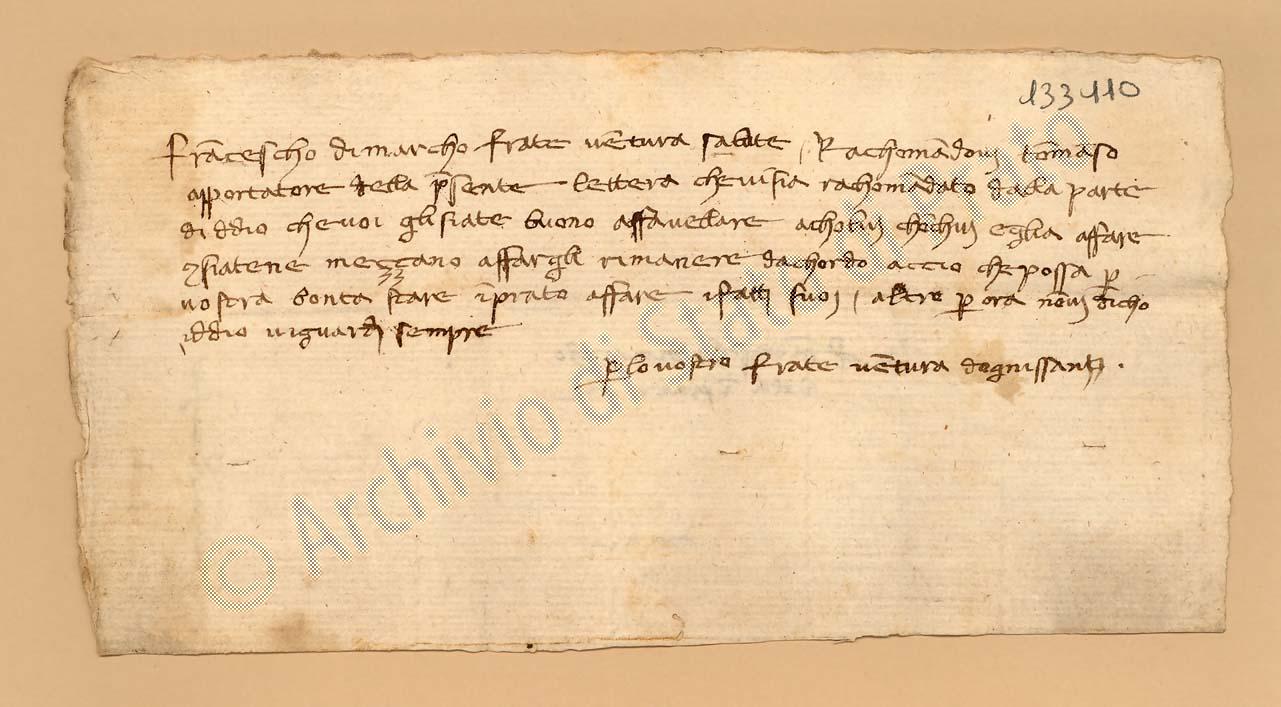 133110
Franceschо di marcho frate uētura salute / Rachomādoui tōmaso
apportatore della p̄sente lettera cheuisia rachomādato dalla parte
di ddio cheuoi glisiate buono affauellare acholui chōchui eglia affare
⁊ siatene mezzano affargli rimanere dachordo accio chepossa ꝑ
uostra bonta stare īprato affare ifatti suoi / altro ꝑ ora nōui dicho
iddio uiguardi sempre
ꝑ louostro frate uētura dognissanti .
© Archivio di Stato di Prato